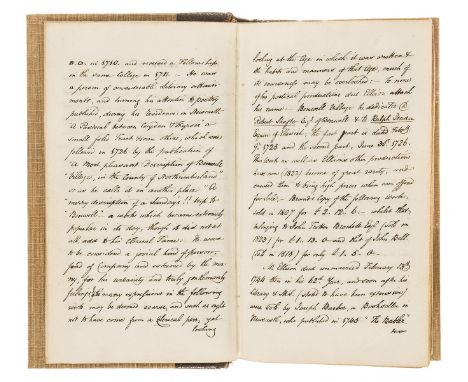 B.D. in 1710. and received a Fellowship
in the same College in 1711. — He was
a person of considerable literary attain-
ments, and turning his attention to poetry
published during his residence in Newcastle
A Pastoral between Corydon & Thyrsis a
small folio Tract from others, which was
followed in 1726 by the publication of
"A Most pleasant Description of Benwell
Village, in the County of Northumberland"
or as he calls it in another place "A
merry description of a Sunday's trip to
Benwell" a work which became extremely
popular in its day, though it did not at
all add to his Clerical Fame. He seems
to be considered a jovial kind of person,
fond of Company and esteemed by the ma-
ny, for his urbanity and truly gentlemanly
feelings. In many expressions in the following
work may be deemed coarse, and such as ought
not to have come from a Clerical pen, yet
looking
looking at the Age in which it was written &
the habits and manners of that Age, much of
its coarseness may be overlooked: — To none
of his poetical productions did Ellison attach
his name. — Benwell Village he dedicates to
Robert Shafto Esq. of Benwell & to Ralph
Esquire of the first part is dated
1725 and the second part, June 26. 1726.
This work as well as Ellison's other productions
are now (1832) become of great rarity, and
caused them to bring high prices when ever offered
for Sale. — Brand's Copy of the following work,
sold in 1807 for £2. 12. 6. — whilst that
belonging to John Trotter Brockett Esq. (Sold in
1823) for £1. 13. 0 — and that of John Bell
(Sold in 1818) for only £1. 5. 0. —
Mr. Ellison died unmarried February
1744 then in his 62nd Year, and soon after his
Library & MSS. (stated to have been extensive)
were sold by Joseph Barber, a Bookseller in
Newcastle, who published in 1745 "The Babler"